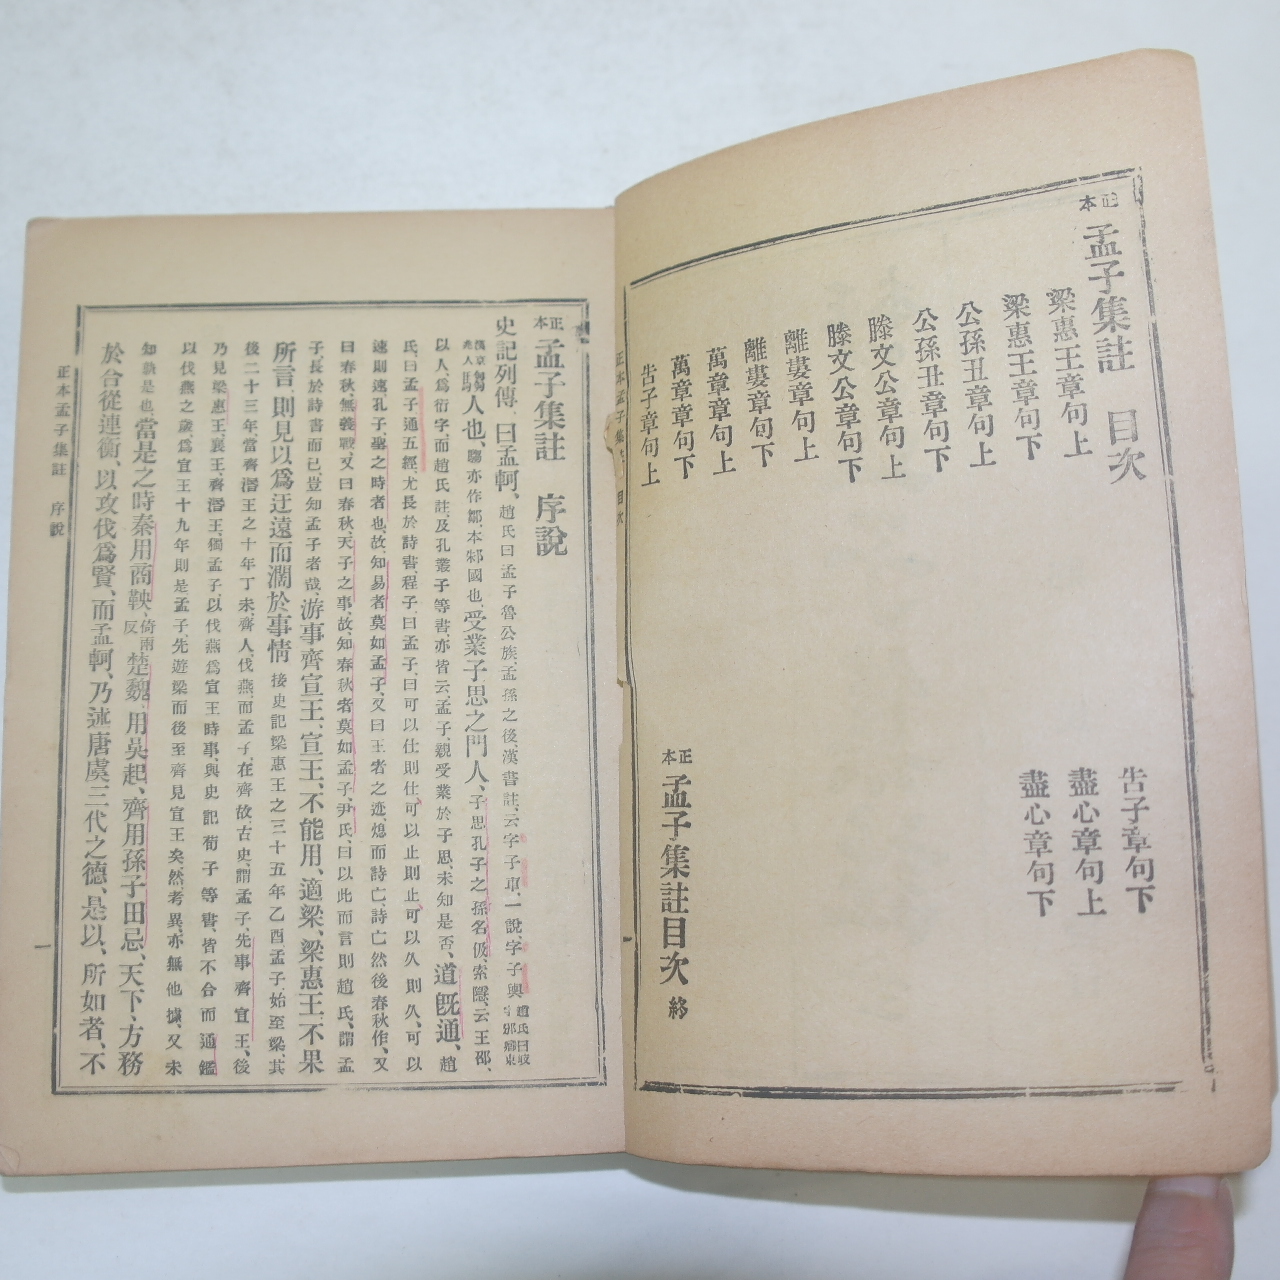 正本 孟子集註 目次
梁惠王章句上
梁惠王章句下
公孫丑章句上
公孫丑章句下
滕文公章句上
滕文公章句下
離婁章句上
離婁章句下
萬章章句上
萬章章句下
告子章句上
告子章句下
盡心章句上
盡心章句下
正本 孟子集註目次 終
正本孟子集註 目次
正本 孟子集註 序說
史記列傳、曰孟軻、趙氏曰孟子魯公族、孟孫之後、漢書註、云字子車、一說、字子輿
人也、騶亦作鄒、本邾國也、受業子思之門人、子思孔子之、孫名伋、索隱、云王邵、
以人、爲衍字、而趙氏註、及孔叢子等書、亦皆云、孟子、親受業於子思、未知是否、道旣通、趙
氏、曰孟子通五經、尤長於詩書、程子、曰孟子、曰可以仕則仕可以止則止、可以久則久、可以
速則速、孔子、聖之時者也、故、知易者莫如孟子、又曰王者之迹、熄而詩亡、詩亡然後春秋作、又
曰春秋、無義戰、又曰春秋、天子之事、故、知春秋者莫如孟子、尹氏、曰以此而言則趙氏、謂孟
子、長於詩書而已、豈知孟子者哉、游事齊宣王、宣王、不能用、適梁、梁惠王、不果
所言、則見以爲迂遠而濶於事情 按史記梁惠王之三十五年乙酉、孟子、始至梁、其
後二十三年、當齊湣王之十年丁未、齊人、伐燕、而孟子、在齊故、古史、謂孟子、先事齊宣王、後
乃見梁惠王、襄王、齊湣王、獨孟子、以伐燕爲宣王時事、與史記荀子等書、皆不合而通鑑
以伐燕之歲、爲宣王十九年則是孟子、先遊梁而後至齊見宣王矣、然、考異、亦無他據、又未
知孰是也、當是之時、秦用商鞅、楚魏、用吳起、齊用孫子田忌、天下、方務
於合從連衡、以攻伐爲賢、而孟軻、乃述唐虞三代之德、是以、所如者、不
正本孟子集註 序說
一